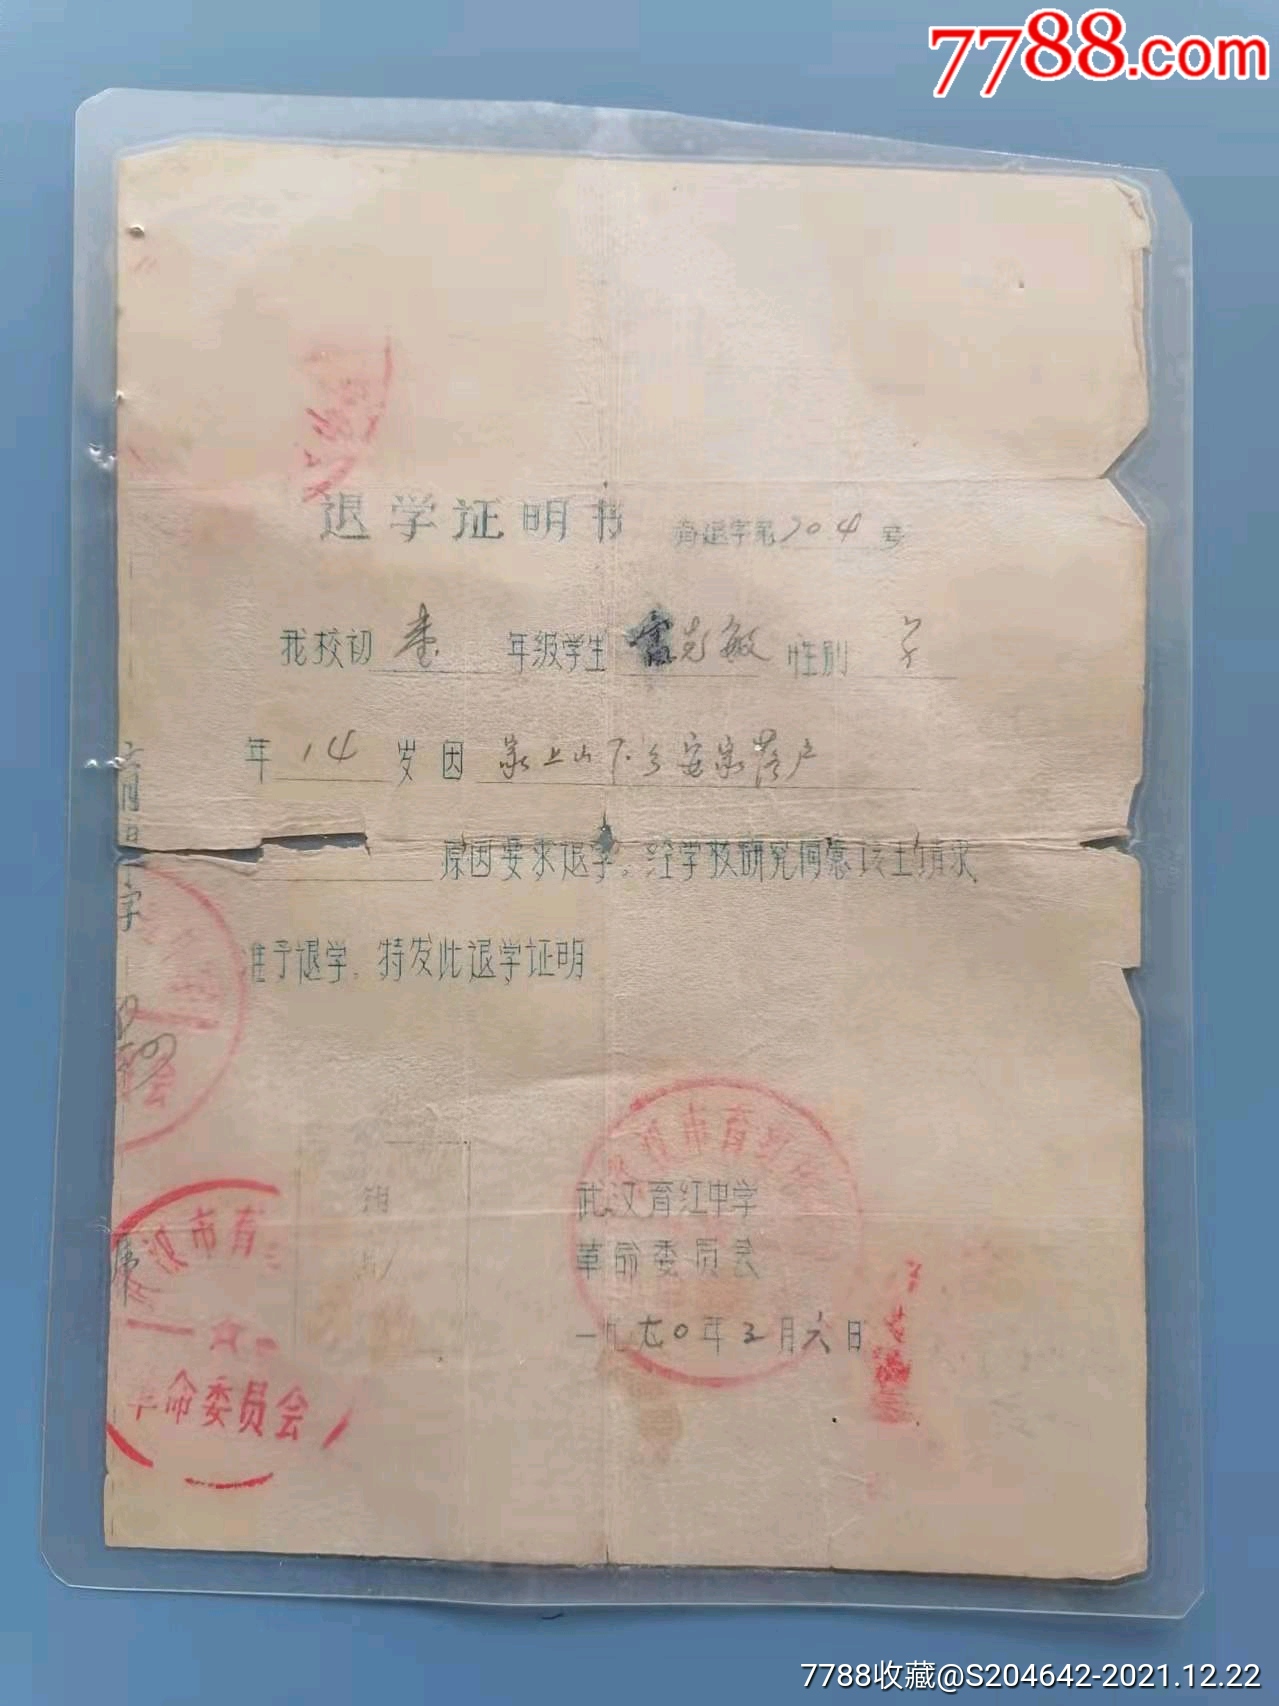 7788.com
退学证明书 育退字第704号
我校初 壹 年级学生 克敏 性别
年 14 岁因 家上山下乡安家落户
原因要求退学。经学校研究同意该生请求
准予退学。特发此退学证明
育退字
汉市育
武汉育红中学
革命委员会
一九七0年三月六日
革命委员会
7788收藏@S204642-2021.12.22